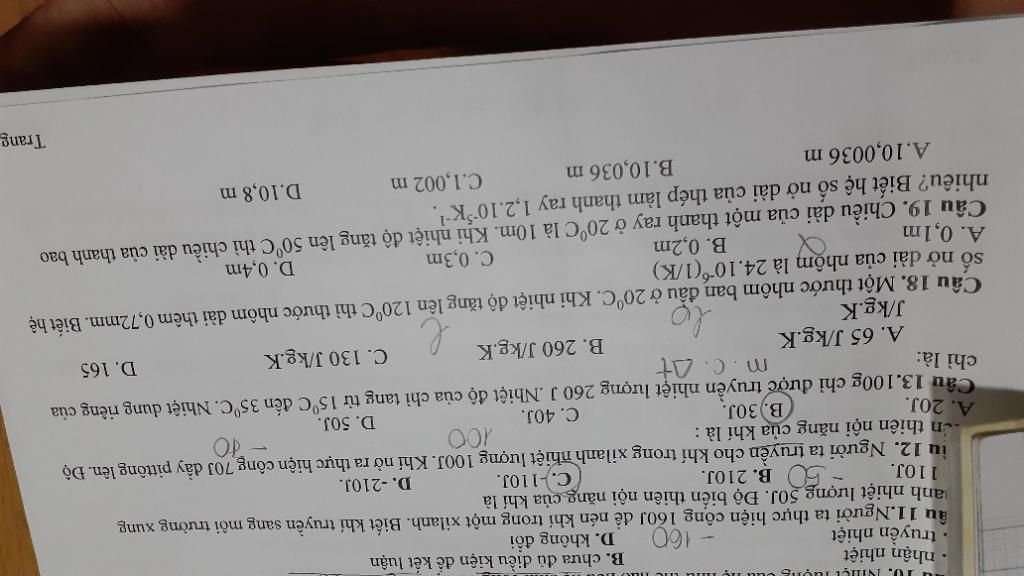 10. Nhiệt lượng của hệ như thế nào
. nhận nhiệt B. chưa đủ điều kiện để kết luận
. truyền nhiệt D. không đổi
- 160
âu 11.Người ta thực hiện công 160J để nén khí trong một xilanh. Biết khí truyền sang môi trường xung
uanh nhiệt lượng 50J. Độ biến thiên nội năng của khí là
- 50
110J. B. 210J. C. -110J. D. -210J.
âu 12. Người ta truyền cho khí trong xilanh nhiệt lượng 100J. Khí nở ra thực hiện công 70J đẩy pittông lên. Độ
ến thiên nội năng của khí là :
100 - 70
A. 20J. B. 30J. C. 40J. D. 50J.
Câu 13.100g chì được truyền nhiệt lượng 260 J .Nhiệt độ của chì tăng từ 15⁰C đến 35⁰C. Nhiệt dung riêng của
chì là: m . c . Δt
A. 65 J/kg.K B. 260 J/kg.K C. 130 J/kg.K D. 165
J/kg.K
lo l
Câu 18. Một thước nhôm ban đầu ở 20⁰C. Khi nhiệt độ tăng lên 120⁰C thì thước nhôm dài thêm 0,72mm. Biết hệ
số nở dài của nhôm là 24.10⁻⁶(1/K)
α
A. 0,1m B. 0,2m C. 0,3m D. 0,4m
Câu 19. Chiều dài của một thanh ray ở 20⁰C là 10m. Khi nhiệt độ tăng lên 50⁰C thì chiều dài của thanh bao
nhiêu? Biết hệ số nở dài của thép làm thanh ray 1,2.10⁻⁵K⁻¹ .
A.10,0036 m B.10,036 m C.1,002 m D.10,8 m
Trang